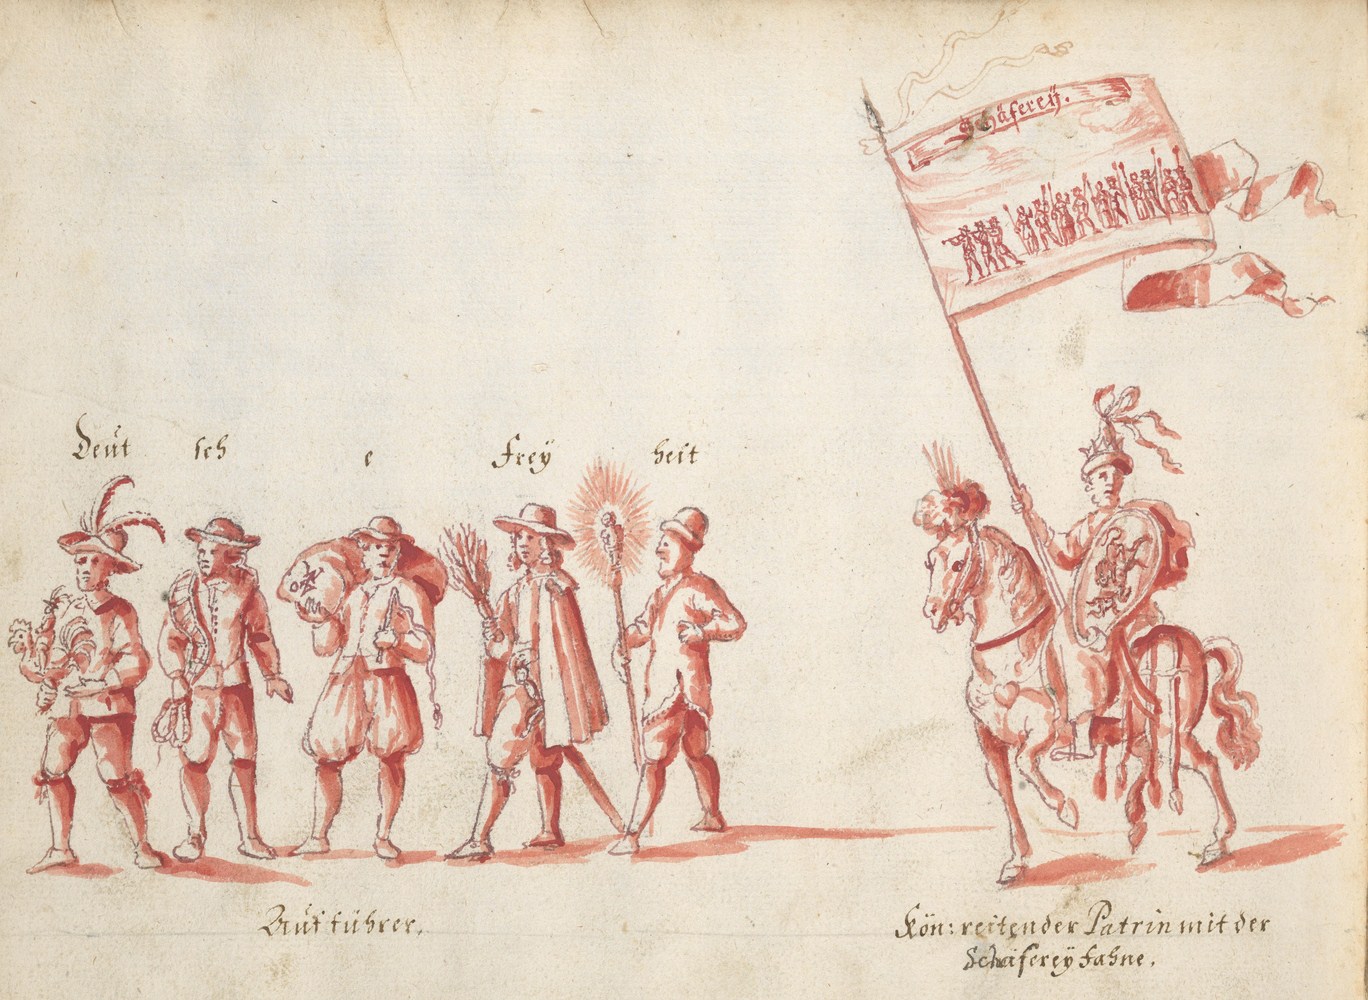 Schäfereÿ.
Deut sch e Freÿ heit
Aufführer.
Kön: reitender Patrin mit der
Schäfereÿ Fahne.